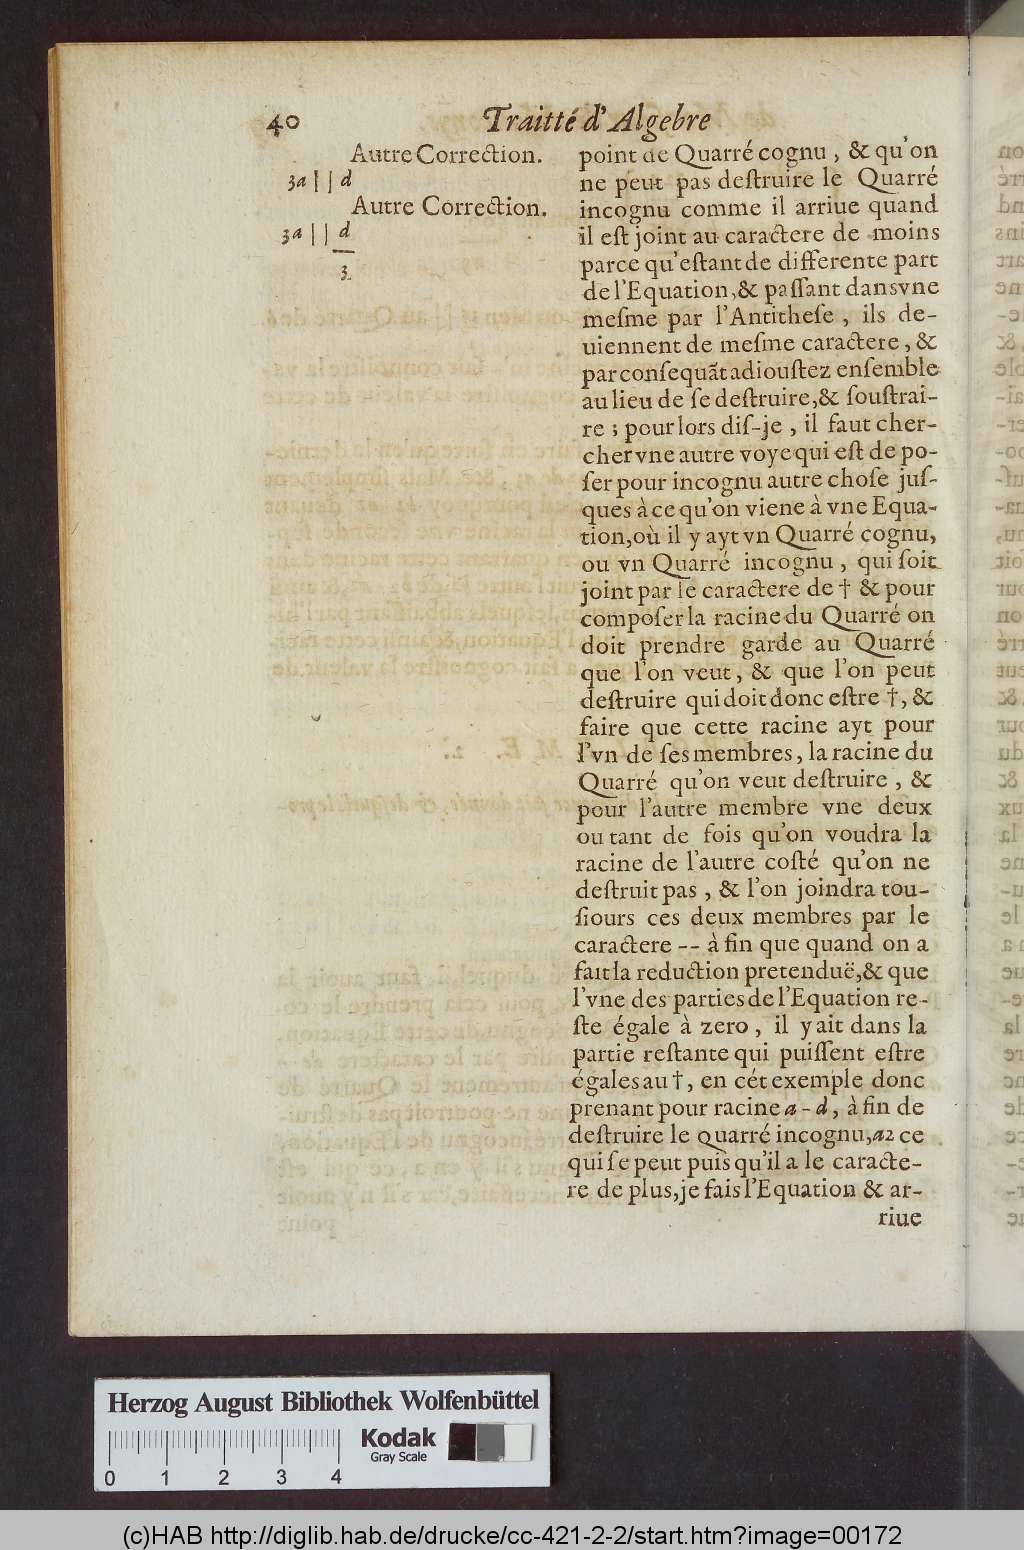 40 Traitté d'Algebre
Autre Correction.
3a || d
Autre Correction.
3a || d
3.
point de Quarré cognu, & qu'on
ne peut pas deſtruire le Quarré
incognu comme il arriue quand
il eſt joint au caractere de moins
parce qu'eſtant de differente part
de l'Equation,& paſſant dans vne
meſme par l'Antitheſe, ils de-
uiennent de meſme caractere, &
par conſequãt adiouſtez enſemble
au lieu de ſe deſtruire,& ſouſtrai-
re ; pour lors diſ-je, il faut cher-
cher vne autre voye qui eſt de po-
ſer pour incognu autre choſe juſ-
ques à ce qu'on viene à vne Equa-
tion,où il y ayt vn Quarré cognu,
ou vn Quarré incognu, qui ſoit
joint par le caractere de † & pour
compoſer la racine du Quarré on
doit prendre garde au Quarré
que l'on veut, & que l'on peut
deſtruire qui doit donc eſtre †, &
faire que cette racine ayt pour
l'vn de ſes membres, la racine du
Quarré qu'on veut deſtruire, &
pour l'autre membre vne deux
ou tant de fois qu'on voudra la
racine de l'autre coſté qu'on ne
deſtruit pas, & l'on joindra tou-
ſiours ces deux membres par le
caractere -- à fin que quand on a
fait la reduction pretenduë,& que
l'vne des parties de l'Equation re-
ſte égale à zero, il y ait dans la
partie reſtante qui puiſſent eſtre
égales au †, en cét exemple donc
prenant pour racine a - d, à fin de
deſtruire le quarré incognu,a2 ce
qui ſe peut puis qu'il a le caracte-
re de plus,je fais l'Equation & ar-
riue
Herzog August Bibliothek Wolfenbüttel
Kodak
Gray Scale
0 1 2 3 4
(c)HAB http://diglib.hab.de/drucke/cc-421-2-2/start.htm?image=00172